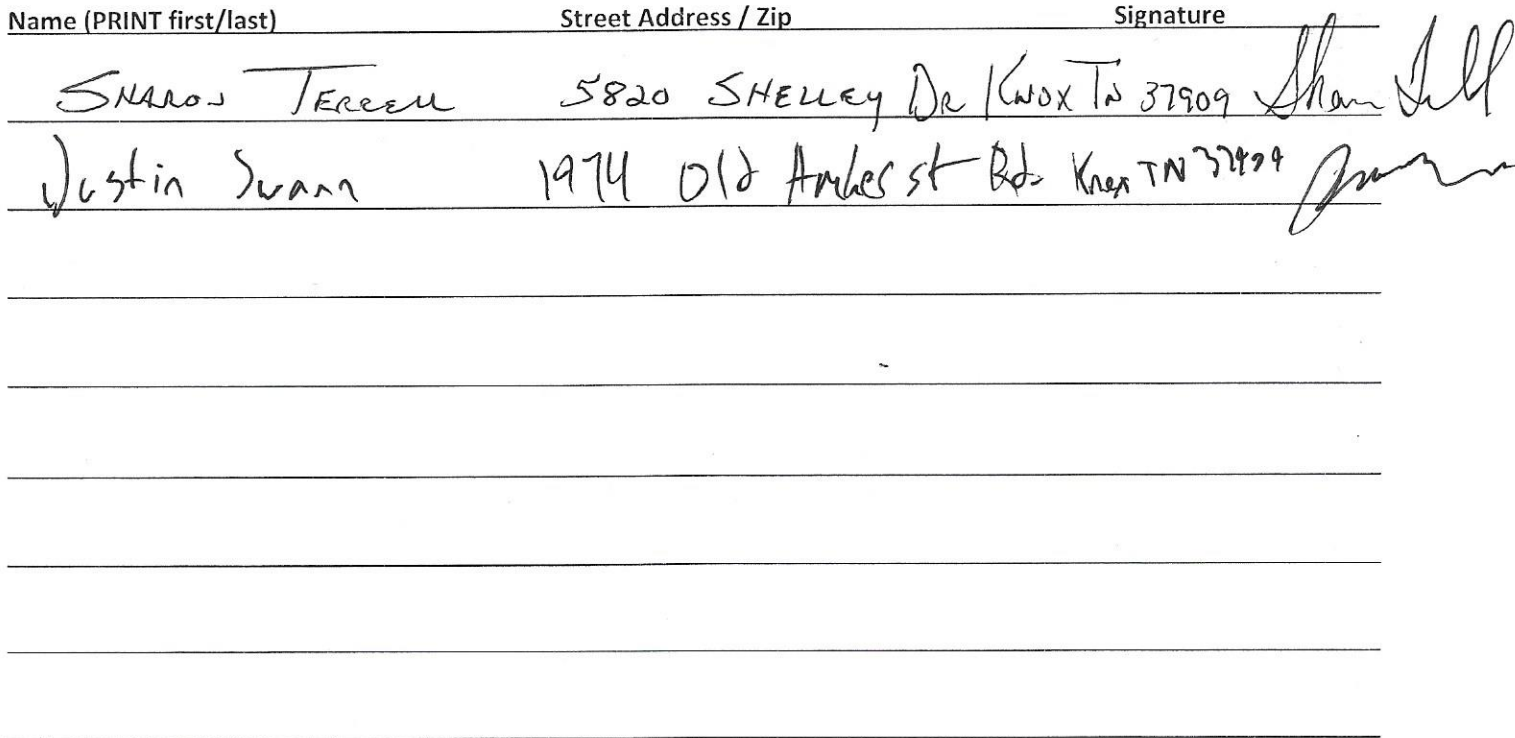 Name (PRINT first/last) Street Address / Zip Signature
SHARON TERRELL 5820 SHELLEY DR KNOX TN 37909
Justin Swann 1974 Old Amherst Rd. Knox TN 37909